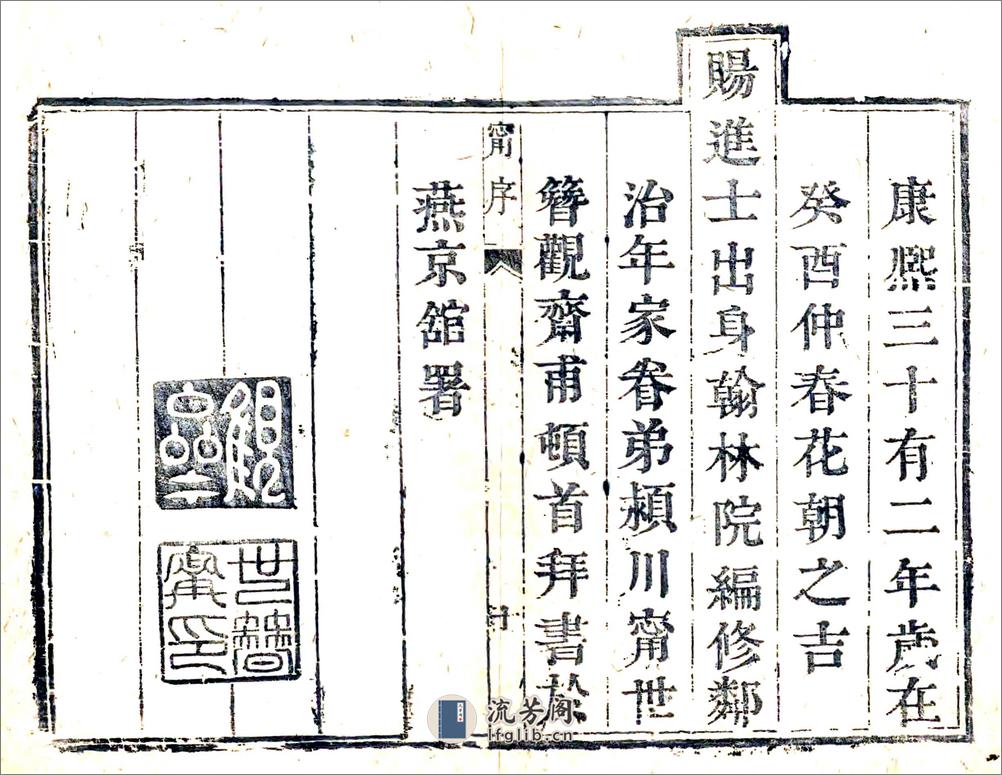 康熙三十有二年歲在
癸酉仲春花朝之吉
賜進士出身翰林院編修鄰
治年家眷弟潁川甯世
簪觀齋甫頓首拜書於
甯序
燕京舘署
世簪
甯印
流芳阁
lfglib.cn